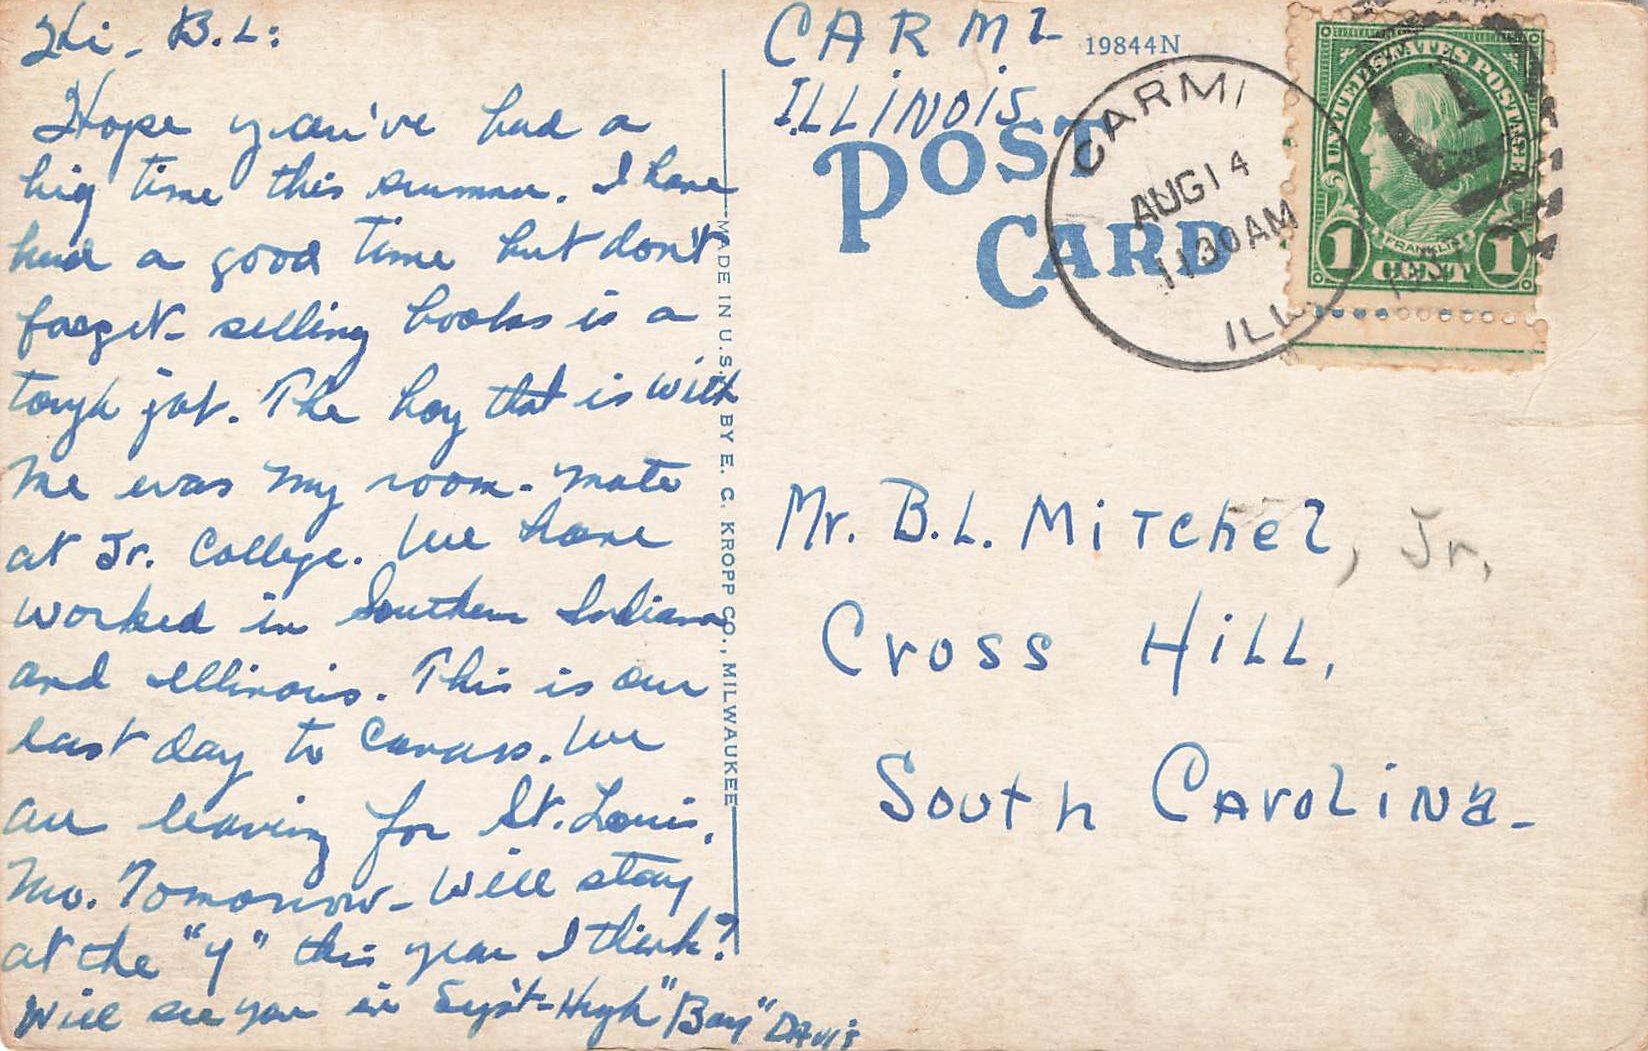 Hi - B.L:
Hope you've had a
big time this summer. I have
had a good time but don't
forget - selling books is a
tough job. The boy that is with
me was my room-mate
at Jr. College. We have
worked in Southern Indiana
and Illinois. This is our
last day to canvass. We
are leaving for St. Louis,
Mo. Tomorrow - Will stay
at the "Y" this year I think?
Will see you in Sept - Hugh "Bay" DAVIS
MADE IN U.S. BY E. C. KROPP CO., MILWAUKEE
CARMI
ILLINOIS
19844N
POST
CARD
CARMI
AUG 14
1130 AM
ILL.
UNITED STATES POSTAGE
FRANKLIN
1 CENT 1
Mr. B.L. Mitchel, Jr.
Cross Hill,
South Carolina -